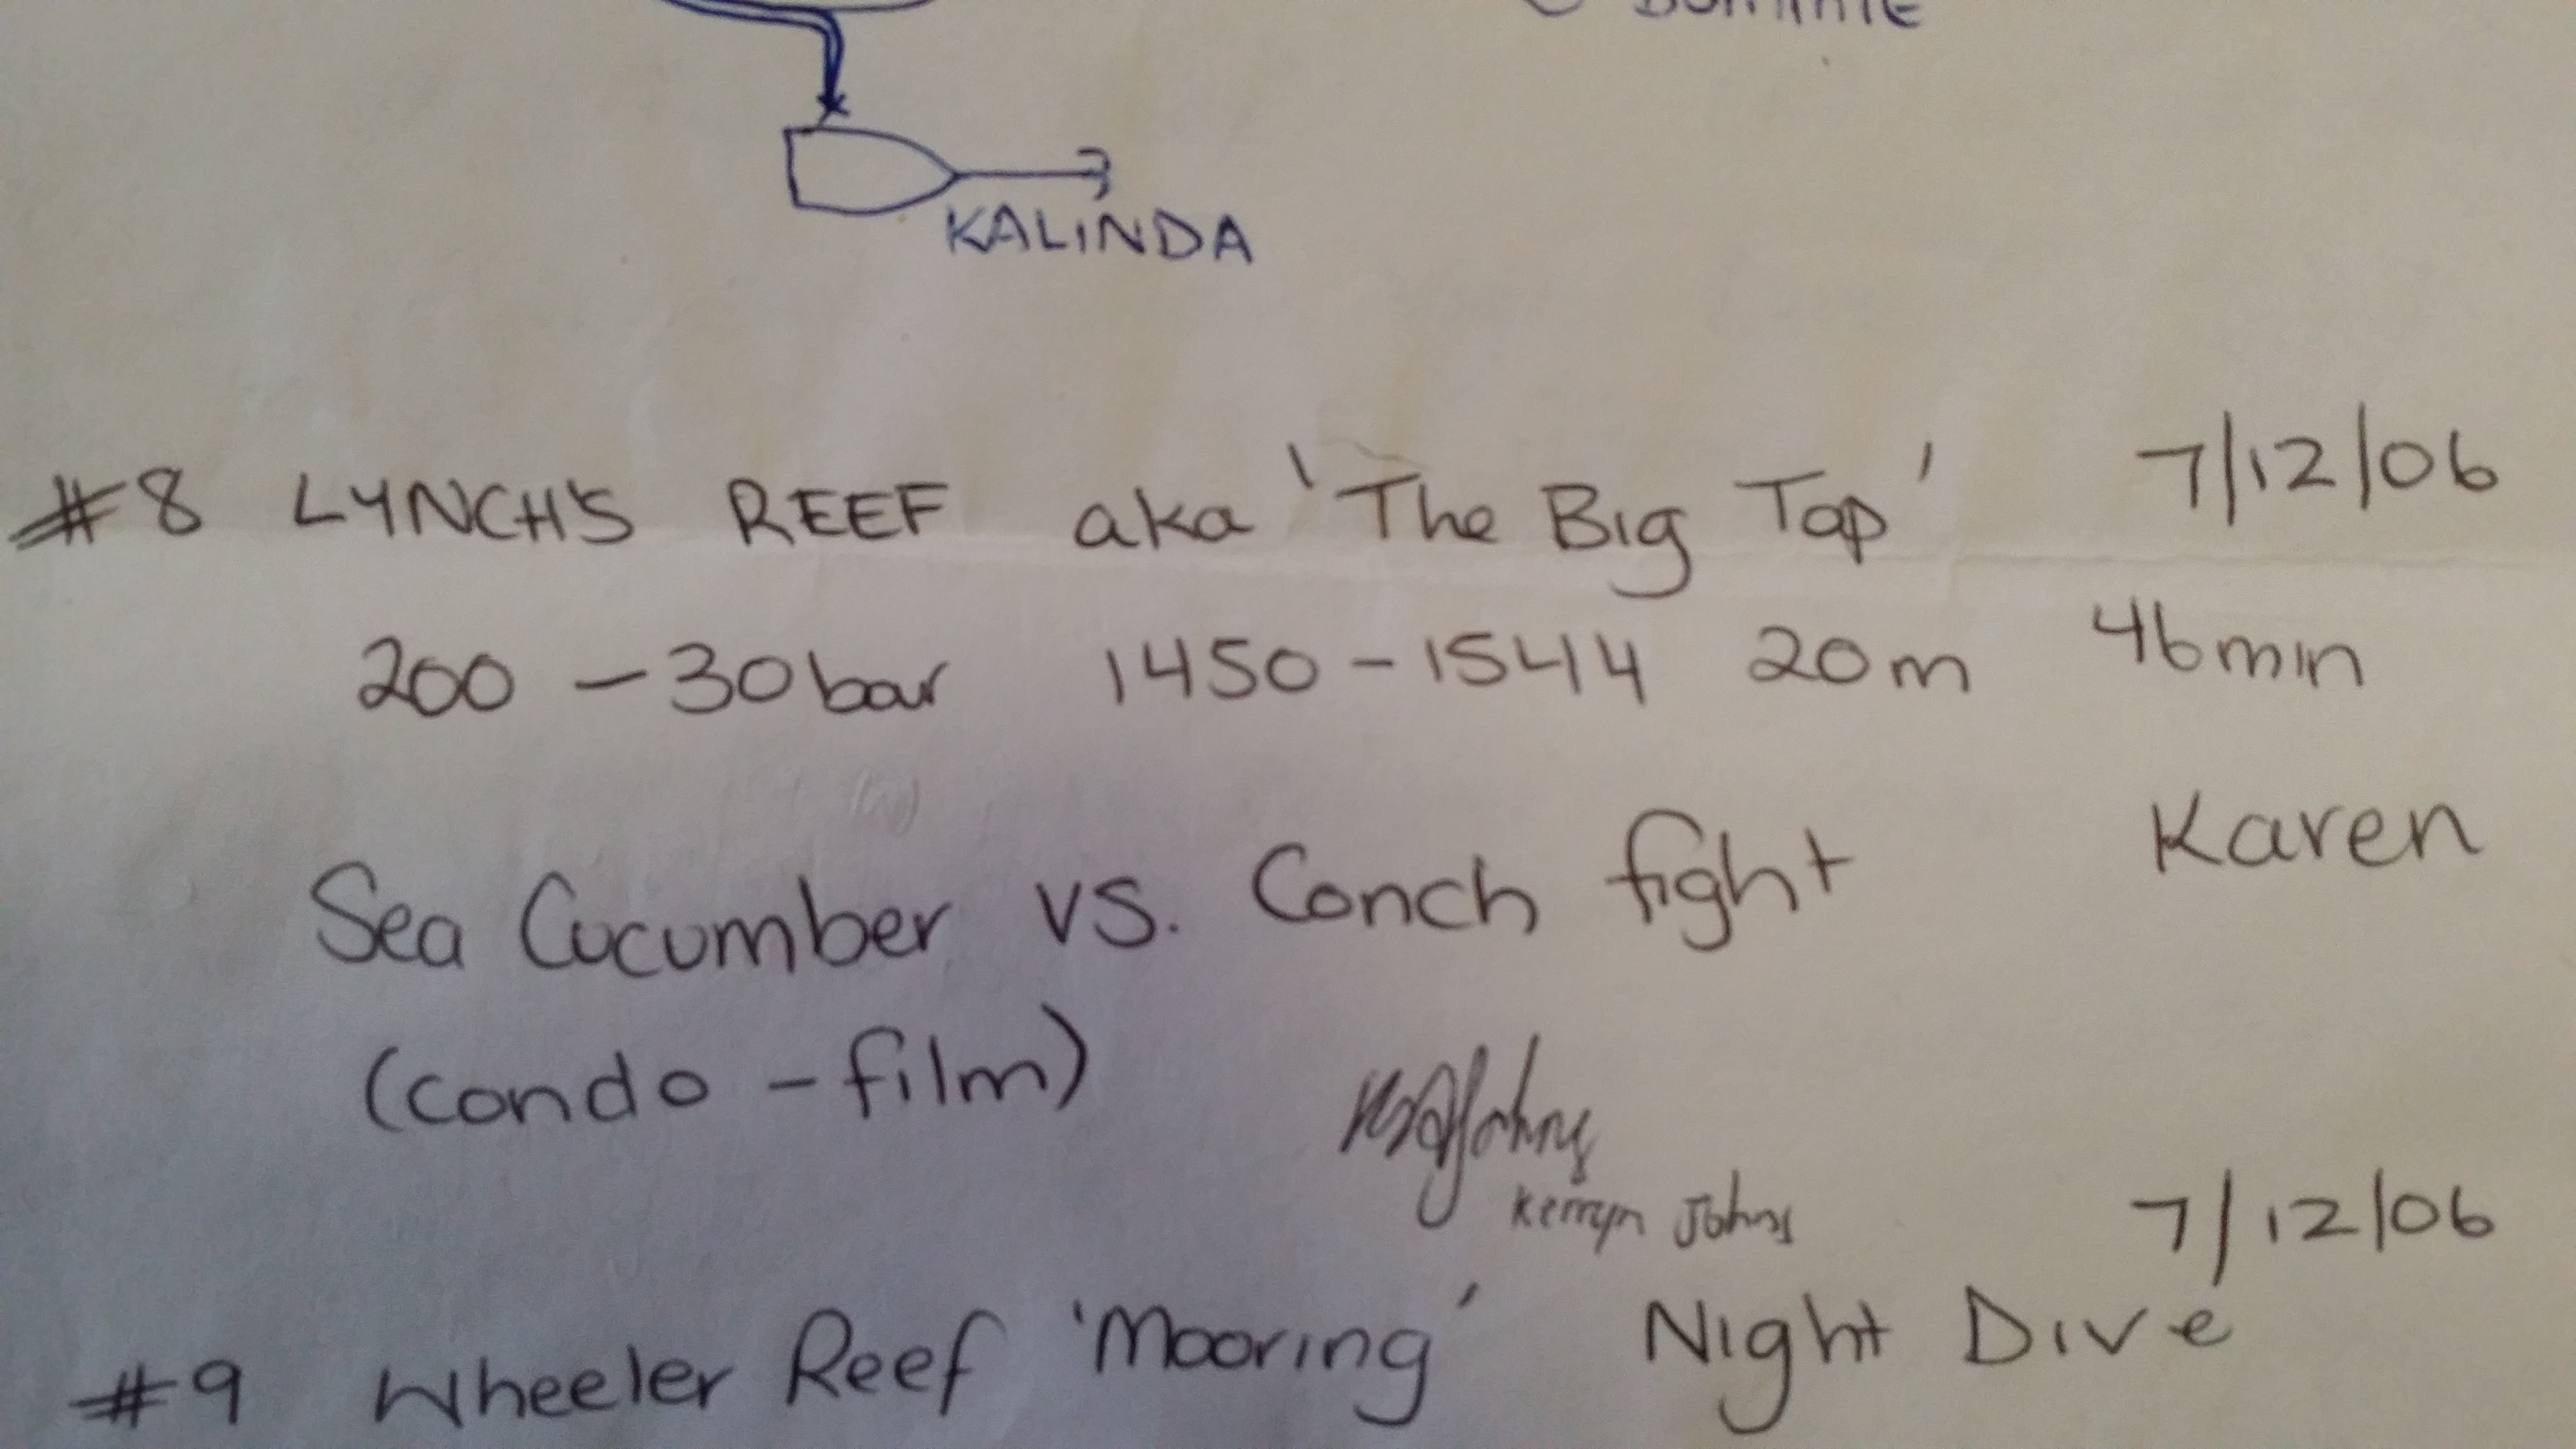 KALINDA
#8 LYNCH'S REEF aka 'The Big Top' 7/12/06
200 - 30 bar 1450 - 1544 20m 46min
Sea Cucumber vs. Conch fight Karen
(condo - film)
Kerryn Johns
7/12/06
#9 Wheeler Reef 'Mooring' Night Dive